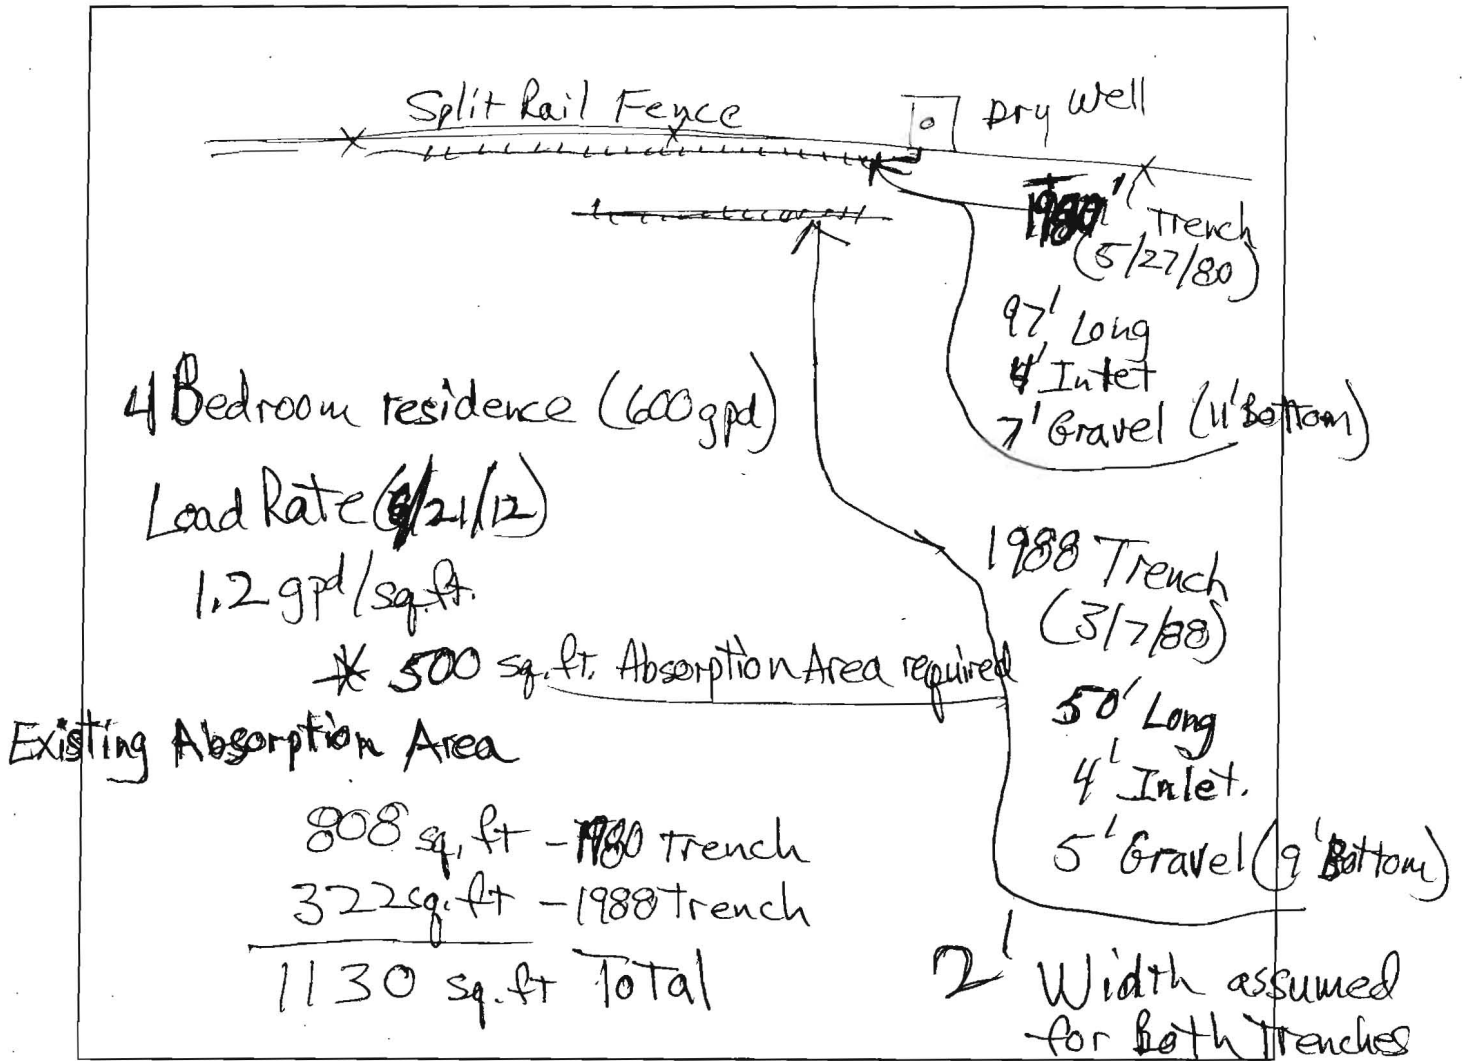 Split Rail Fence
Dry Well
1980 Trench
(5/27/80)
97' Long
4' Inlet
7' Gravel (11' Bottom)
4 Bedroom residence (600gpd)
Load Rate (6/21/12)
1.2 gpd/sq.ft.
* 500 sq.ft. Absorption Area required
Existing Absorption Area
808 sq.ft - 1980 Trench
322 sq.ft - 1988 Trench
1130 sq.ft Total
1988 Trench
(3/7/88)
50' Long
4' Inlet.
5' Gravel (9' Bottom)
2' Width assumed
for Both Trenches